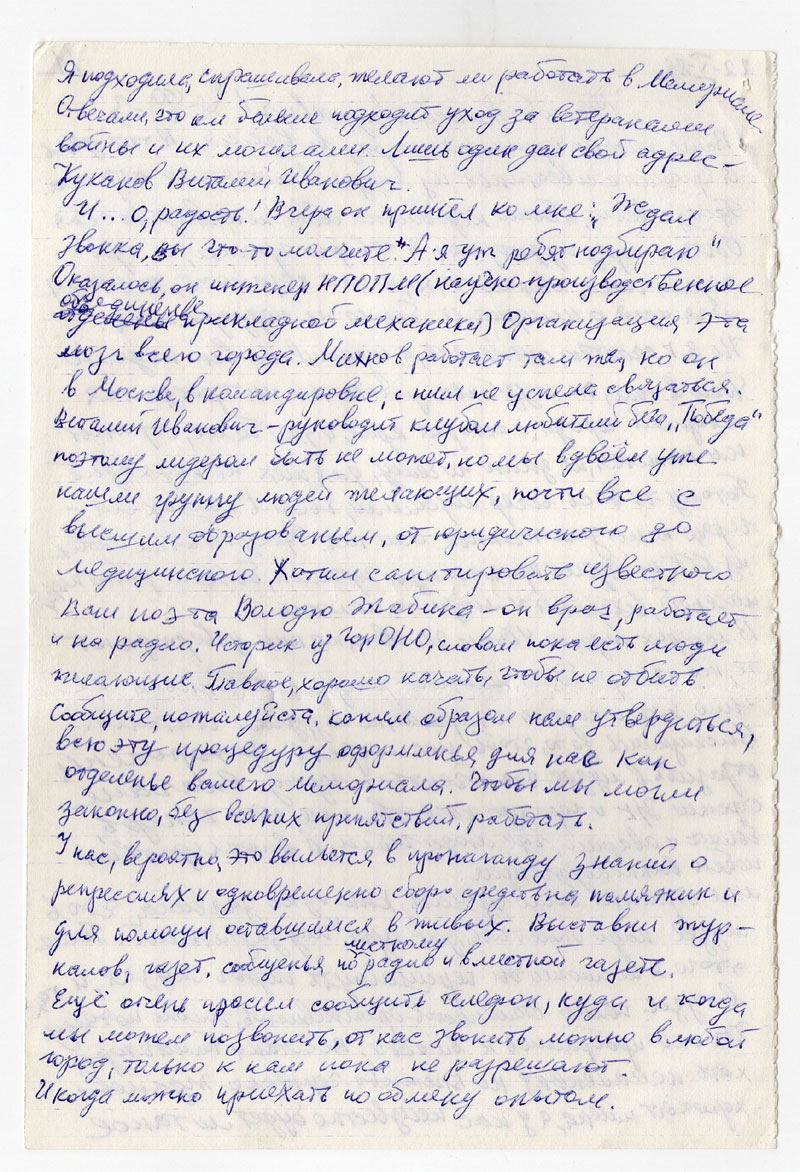 Я подходила, спрашивала, желают ли работать в Мемориале.
Отвечали, что им больше подходит уход за ветеранами
войны и их могилами. Лишь один дал свой адрес –
Куканов Виталий Иванович.
И... О, радость! Вчера он пришёл ко мне: „Ждал
звонка, вы что-то молчите." А я уж ребят подбираю"
Оказалось, он инженер НПОПМ (научно-производственное
объединенье прикладной механики) Организация эта
мозг всего города. работает там же, но он
в Москве, в командировке, с ним не успела связаться.
Виталий Иванович – руководит клубом любителей бега „Победа"
поэтому лидером быть не может, но мы вдвоём уже
нашли группу людей желающих, почти все с
высшим образованьем, от юридического до
медицинского. Хотим сагитировать известного
Вам поэта Володю – он врач, работает
и на радио. Историк из ГорОНО, словом пока есть люди
желающие. Главное, хорошо начать, чтобы не отбить.
Сообщите, пожалуйста, каким образом нам утвердиться,
всю эту процедуру оформленья для нас как
отделенье вашего Мемориала. Чтобы мы могли
законно, без всяких препятствий, работать.
У нас, вероятно, это выльется в пропаганду знаний о
репрессиях и одновременно сбор средств на памятник и
для помощи оставшимся в живых. Выставки жур–
налов, газет, сообщенья по местному радио и в местной газете.
Ещё очень просим сообщить телефон, куда и когда
мы можем позвонить, от нас звонить можно в любой
город, только к нам пока не разрешают.
И когда можно приехать по обмену опытом.